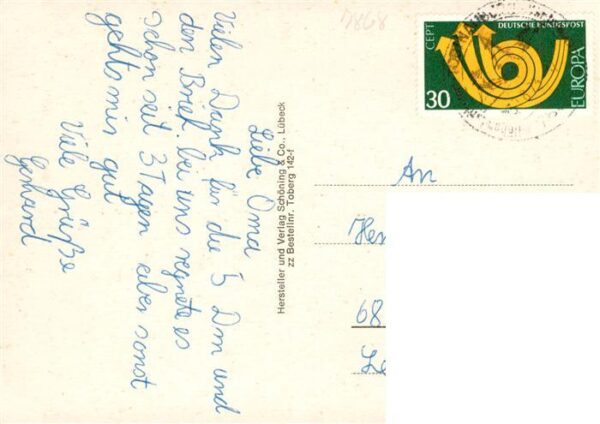 Liebe Oma
Vielen Dank für die 5 Dm und
den Brief. bei uns regnete es
schon seit 3 Tagen aber sonst
gehts mir gut
Viele Grüße
Gerhard
Hersteller und Verlag Schöning & Co., Lübeck
zz Bestellnr. Toberg 142-f
CEPT
DEUTSCHE BUNDESPOST
30
EUROPA
An
68